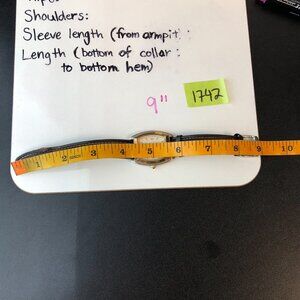 Shoulders:
Sleeve length (from armpit):
Length (bottom of collar :
to bottom hem)
9" 1742
1 2 3 4 5 6 7 8 9 10